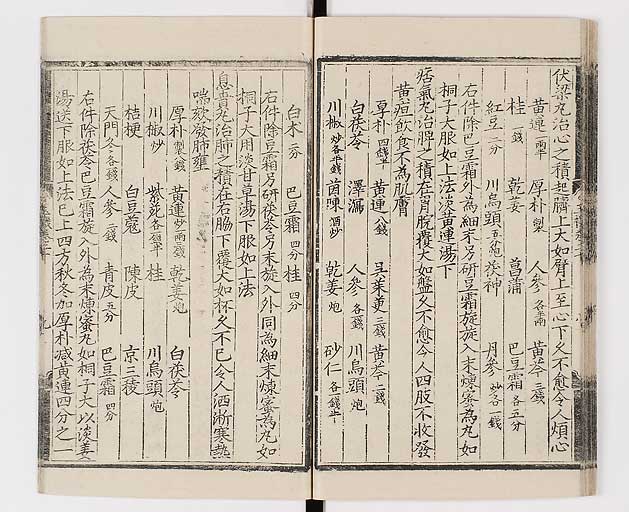 伏梁丸治心之積起臍上大如臂上至心下久不愈令人煩心
黄連一兩半 厚朴製 人參各半兩 黄芩三錢
桂一錢 乾姜 菖蒲 巴豆霜各五分
紅豆二分 川烏頭五分炮 茯神 丹參炒各一錢
右件除巴豆霜外為細末另研豆霜旋旋入末煉蜜為丸如
桐子大服如上法淡黄連湯下
痞氣丸治脾之積在胃脘覆大如盤久不愈令人四肢不收發
黄疸飲食不為肌膚
厚朴四錢半 黄連八錢 吳茱萸三錢 黄芩二錢
白茯苓 澤瀉 人參各一錢 川烏頭炮
川椒炒各半錢 茵陳酒炒 乾姜炮 砂仁各一錢半
白术二分 巴豆霜四分 桂四分
右件除豆霜另研茯苓另末旋入外同為細末煉蜜為丸如
桐子大用淡甘草湯下服如上法
息賁丸治肺之積在右脇下覆大如杯久不已令人洒淅寒熱
喘欬發肺壅
厚朴製八錢 黄連炒一兩三錢 乾姜炮 白茯苓
川椒炒 紫菀各一錢半 桂 川烏頭炮
桔梗 白豆蔻 陳皮 京三稜
天門冬各一錢 人參二錢 青皮五分 巴豆霜四分
右件除茯苓巴豆霜旋入外為末煉蜜丸如桐子大以淡姜
湯送下服如上法已上四方秋冬加厚朴减黄連四分之一